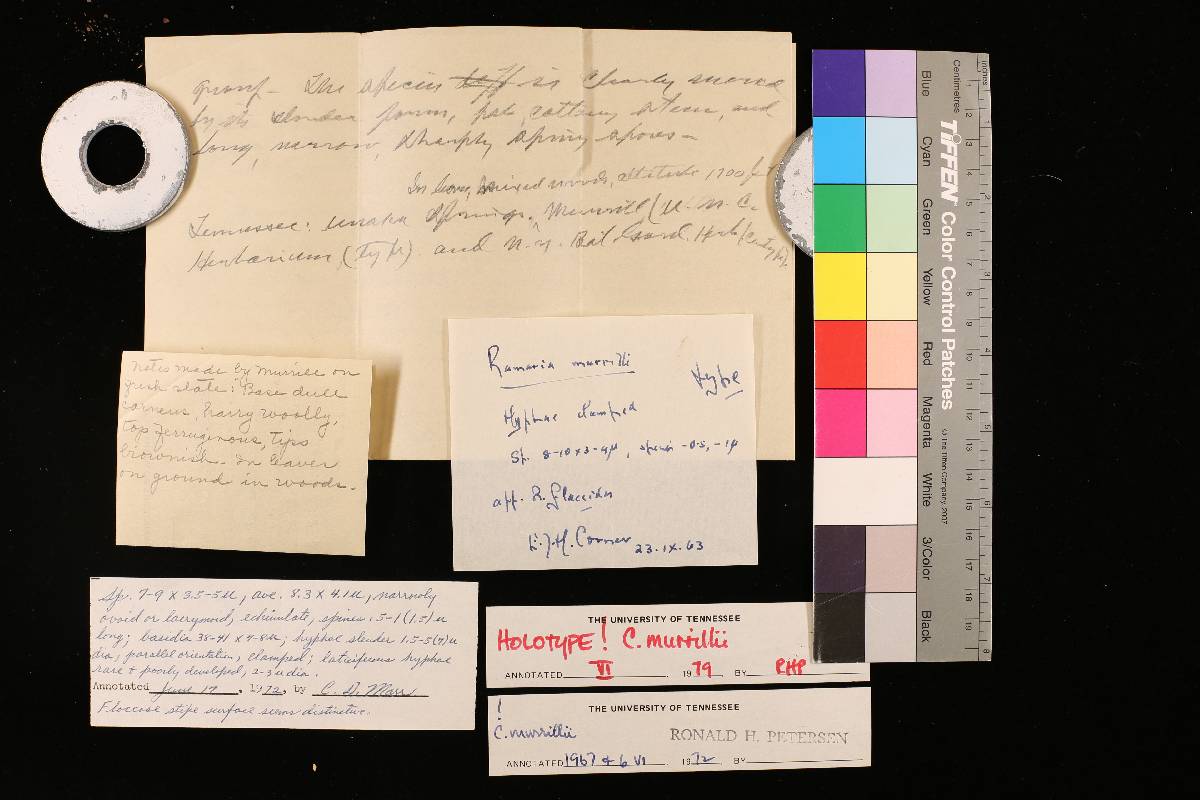 group - The species is clearly marked
by its slender form, pale, cottony stem, and
long, narrow, sharply spiny spores -
In low, mixed woods, altitude 1700 feet
Tennessee: Unaka Springs. Murrill (U. N. C.
Herbarium, (type) and N. Y. Bot. Gard. Herb. (cotype).
Notes made by Murrill on
fresh state: "Base dull
corneus, hairy woolly,
top ferruginous, tips
brownish. In leaves
on ground in woods.
Ramaria murrilli
type
Hyphae clamped
Sp. 8-10 x 3-4µ, spines -0.5, -1µ
aff. R. flaccida
E.J.H. Corner 23.IX.63
Sp. 7-9 X 3.5-5µ, ave. 8.3 X 4.1µ, narrowly
ovoid or lacrymoid, echinulate, spines .5-1(1.5)µ
long; basidia 38-41 x 7-8µ; hyphae slender 1.5-5(7)µ
dia, parallel orientation, clamped; laticiferous hyphae
rare + poorly developed, 2-3µ dia.
Annotated June 17, 1972, by C. D. Marr
Floccose stipe surface seems distinctive.
THE UNIVERSITY OF TENNESSEE
HOLOTYPE! C. murrillii
ANNOTATED VI 1979 BY RHP
THE UNIVERSITY OF TENNESSEE
!
C. murrillii
RONALD H. PETERSEN
ANNOTATED 1967 + 6 VI 1972 BY
Centimetres
Inches
TIFFEN Color Control Patches
© The Tiffen Company, 2007
Blue
Cyan
Green
Yellow
Red
Magenta
White
3/Color
Black